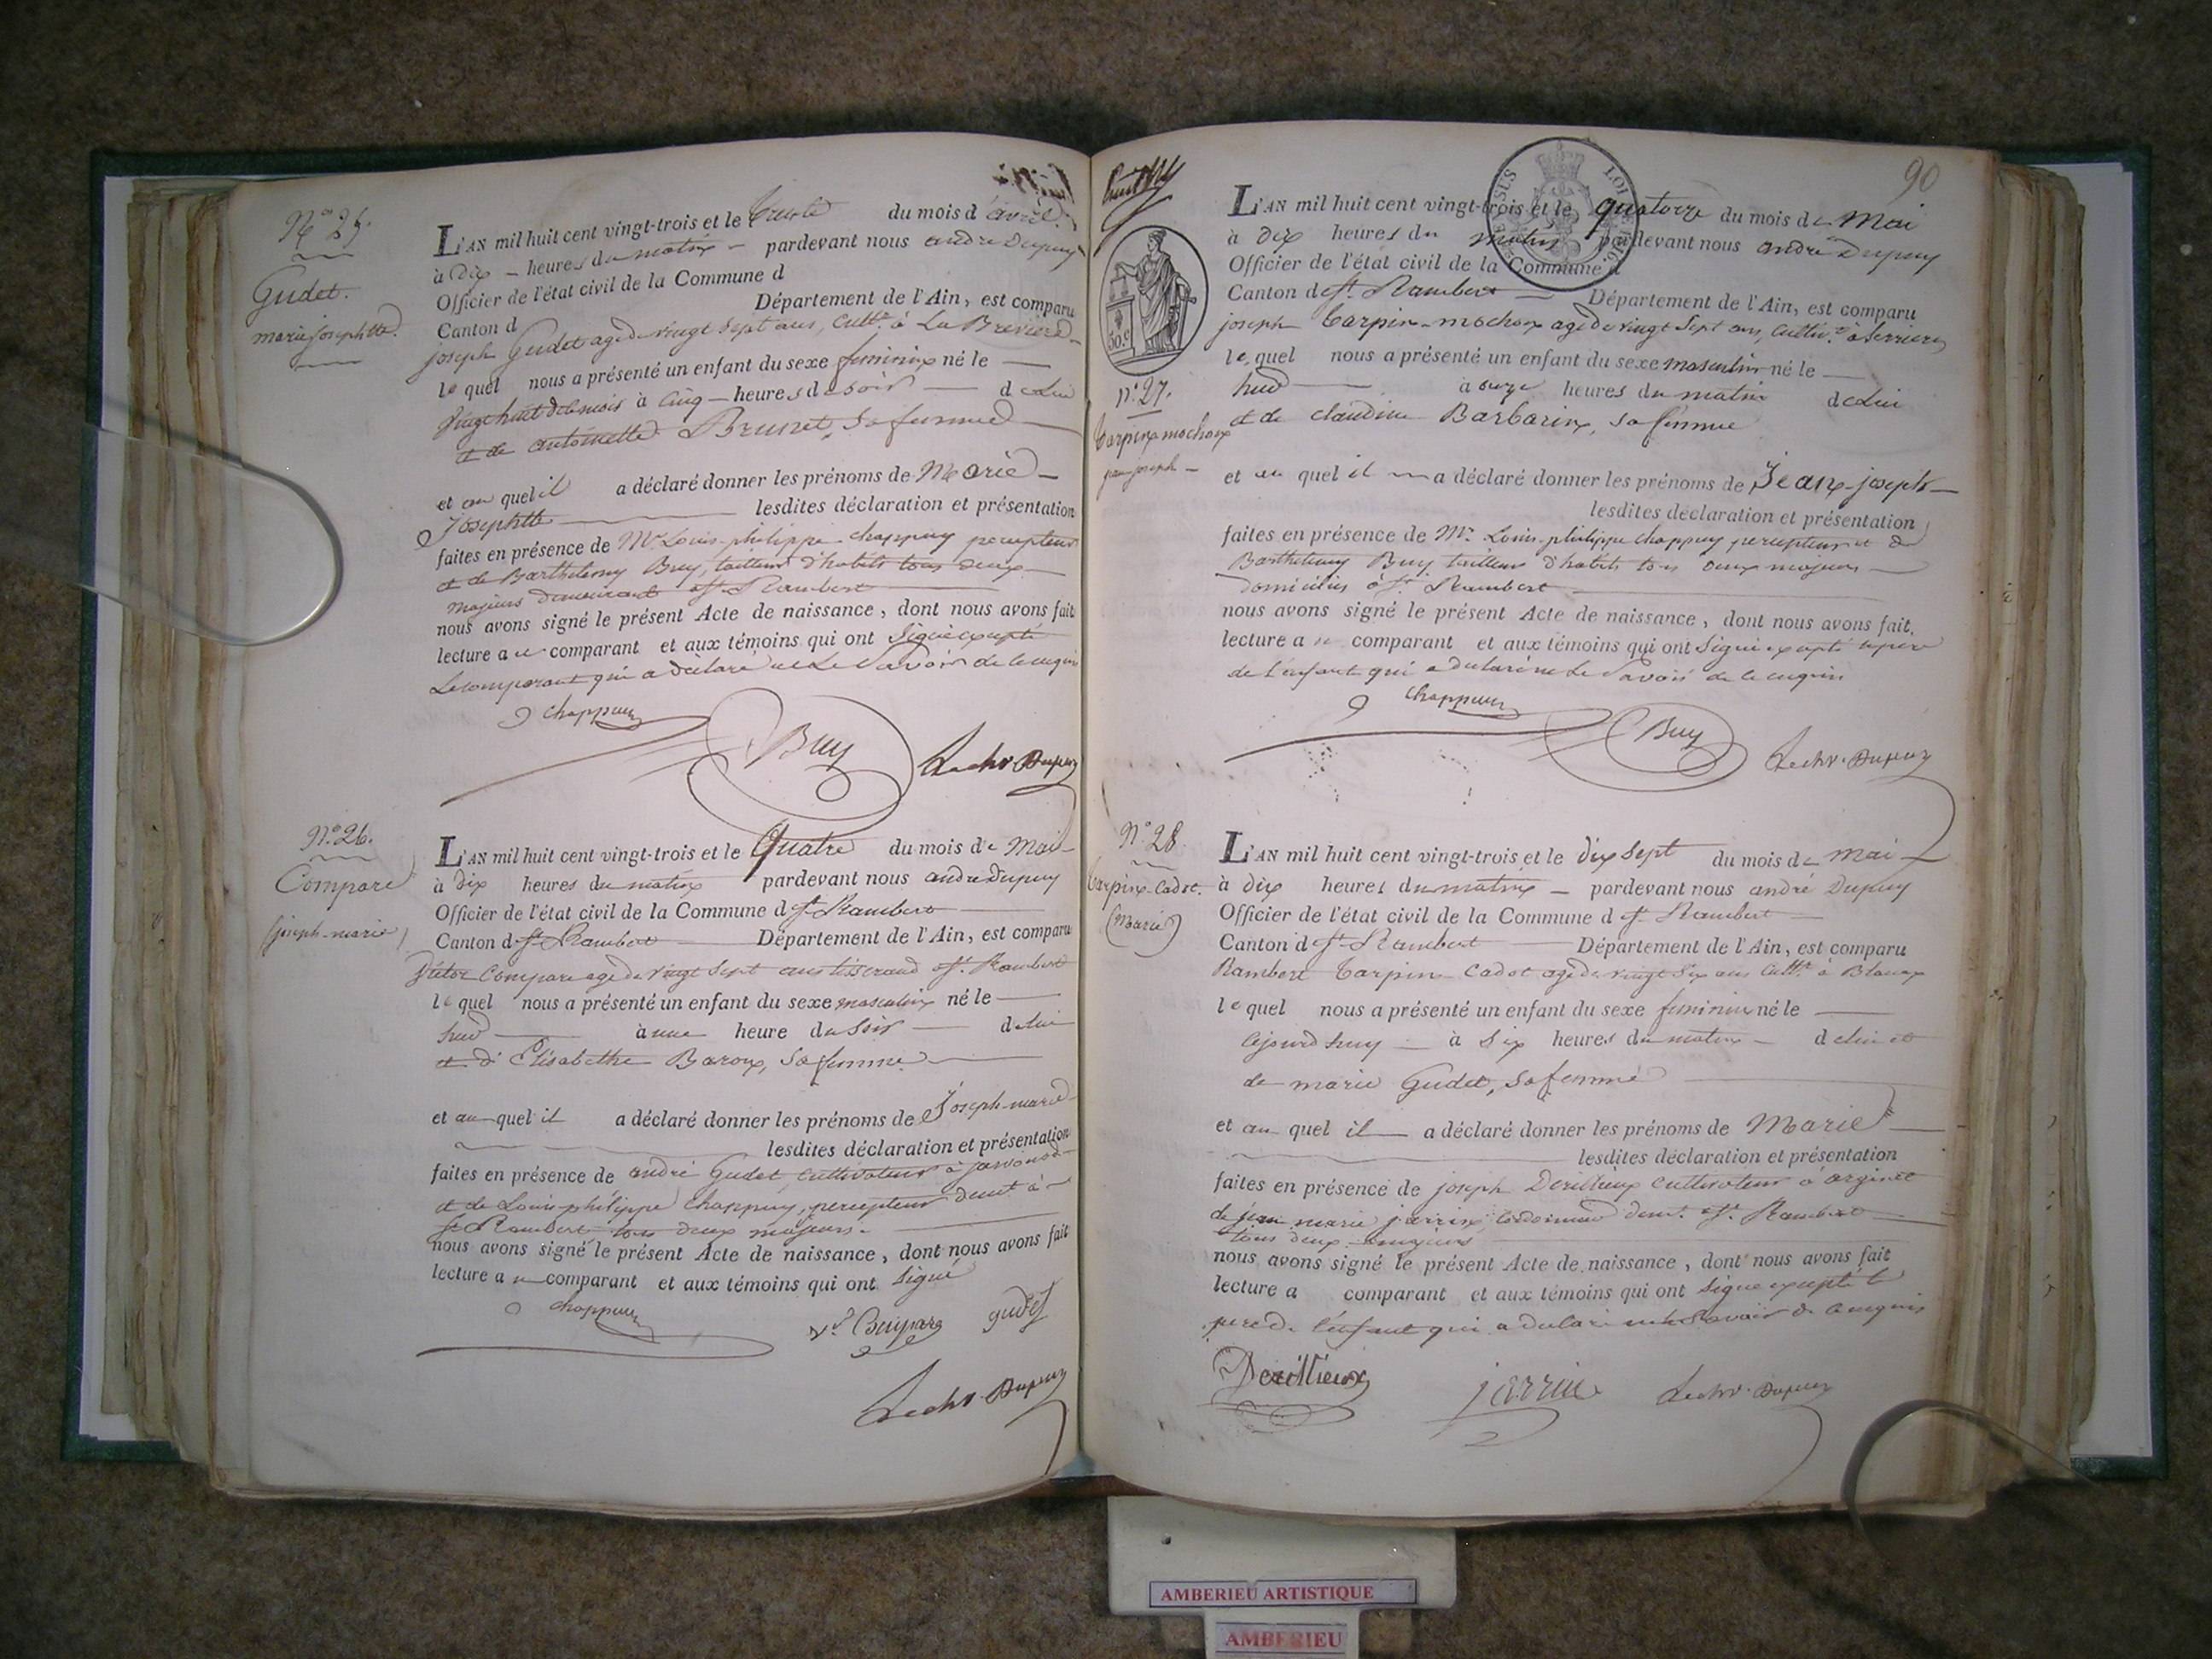 N° 25.
Gudet.
marie josephtte.
L'AN mil huit cent vingt-trois et le trente du mois d'avril
à dix heures du matin pardevant nous andré Dupuy
Officier de l'état civil de la Commune d
Canton d Département de l'Ain, est comparu
joseph Gudet agé de vingt sept ans, cultr. à La Breviere
le quel nous a présenté un enfant du sexe feminin né le
vingt huit de ce mois à cinq heures du soir de lui
et de antoinette Brunet, sa femme
et au quel il a déclaré donner les prénoms de Marie
Josephtte lesdites déclaration et présentation
faites en présence de Mr Louis philippe chappuy percepteur
et de Barthelemy Buy, tailleur d'habits tous deux
majeurs demeurant à St Rambert
nous avons signé le présent Acte de naissance, dont nous avons fait
lecture au comparant et aux témoins qui ont signé excepté
le comparant qui a déclaré ne le savoir de ce enquis
chappuy
Buy
Le chr. Dupuy
N° 26.
Compare
(joseph-marie)
L'AN mil huit cent vingt-trois et le Quatre du mois de Mai
à dix heures du matin pardevant nous andré Dupuy
Officier de l'état civil de la Commune d St Rambert
Canton d St Rambert Département de l'Ain, est comparu
Victor Compare agé de vingt sept ans tisserand à St. Rambert
le quel nous a présenté un enfant du sexe masculin né le
hier à une heure du soir de lui
et d'Elisabethe Baroux, sa femme
et au quel il a déclaré donner les prénoms de Joseph-marie
lesdites déclaration et présentation
faites en présence de andré Gudet, cultivateur à javornod
et de Louis philippe Chappuy, percepteur demt. à
St Rambert tous deux majeurs
nous avons signé le présent Acte de naissance, dont nous avons fait
lecture au comparant et aux témoins qui ont signé
chappuy
Vr. Compare
gudet
Le chr. Dupuy
90
L'AN mil huit cent vingt-trois et le quatorze du mois de Mai
à dix heures du matin pardevant nous andré Dupuy
Officier de l'état civil de la Commune d
Canton d St. Rambert Département de l'Ain, est comparu
joseph Carpin-mochon agé de vingt sept ans, cultivr. à Serrieres
le quel nous a présenté un enfant du sexe masculin né le
hier à onze heures du matin de lui
et de claudine Barbarin, sa femme
n° 27.
Carpin mochon
jean joseph
et au quel il a déclaré donner les prénoms de Jean-joseph
lesdites déclaration et présentation
faites en présence de Mr Louis-philippe Chappuy percepteur et de
Barthelemy Buy tailleur d'habits tous deux majeurs
domiciliés à St. Rambert
nous avons signé le présent Acte de naissance, dont nous avons fait
lecture au comparant et aux témoins qui ont signé excepté le pere
de l'enfant qui a declaré ne le savoir de ce enquis
chappuy
Buy
Le chr. Dupuy
N° 28.
Carpin-Cadot.
(Marie)
L'AN mil huit cent vingt-trois et le dix sept du mois de mai
à dix heures du matin pardevant nous andré Dupuy
Officier de l'état civil de la Commune d St. Rambert
Canton d St. Rambert Département de l'Ain, est comparu
Rambert Carpin Cadot agé de vingt six ans cultr. à Blanaz
le quel nous a présenté un enfant du sexe feminin né le
ajourd huy à six heures du matin de lui et
de marie Gudet, sa femme
et au quel il a déclaré donner les prénoms de Marie
lesdites déclaration et présentation
faites en présence de joseph Derillieux cultivateur à argis et
de jean marie jarrin cordonnier demt. à St. Rambert
tous deux majeurs
nous avons signé le présent Acte de naissance, dont nous avons fait
lecture a comparant et aux témoins qui ont signé excepté le
pere de l'enfant qui a declaré ne le savoir de ce enquis
Derillieux
jarrin
Le chr. Dupuy
AMBERIEU ARTISTIQUE
AMBERIEU